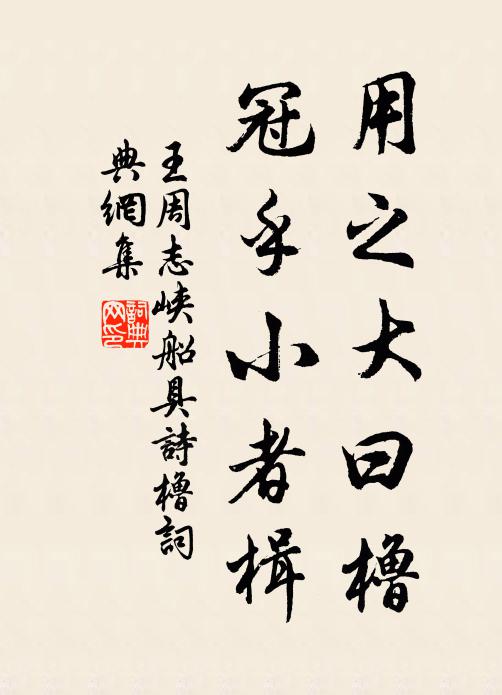 用之大曰櫓
冠乎小者楫
王周志峽船具詩櫓詞
典網集
詞典
网印